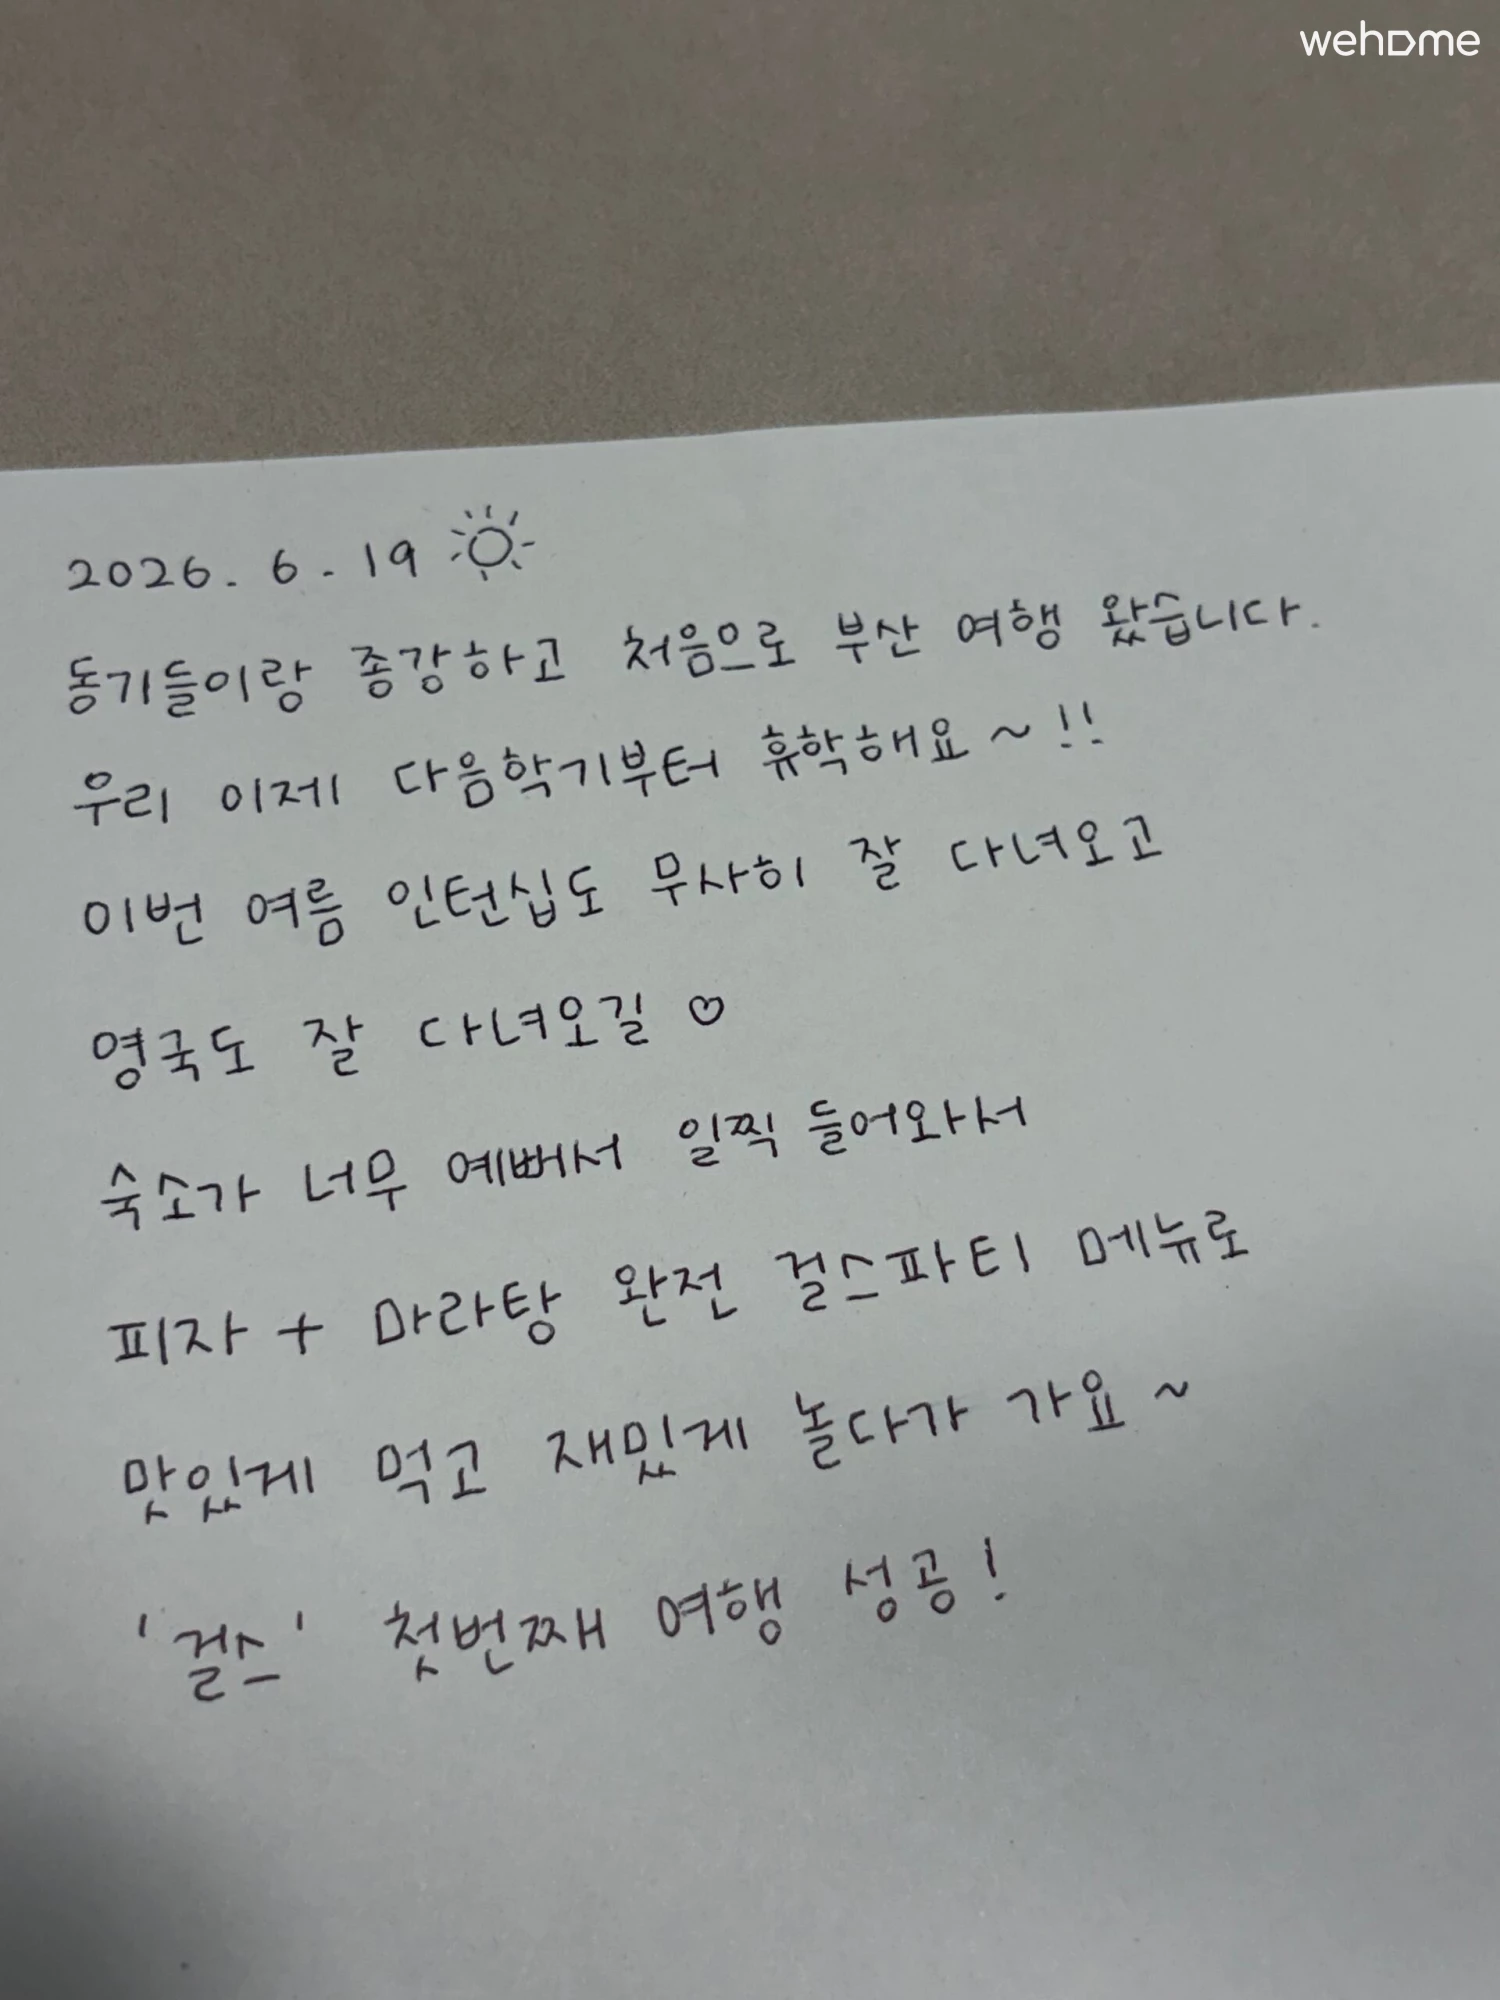 wehome
2026. 6. 19
동기들이랑 종강하고 처음으로 부산 여행 왔습니다.
우리 이제 다음학기부터 휴학해요~!!
이번 여름 인턴십도 무사히 잘 다녀오고
영국도 잘 다녀오길 ♡
숙소가 너무 예뻐서 일찍 들어와서
피자 + 마라탕 완전 걸스파티 메뉴로
맛있게 먹고 재밌게 놀다가 가요~
'걸스' 첫번째 여행 성공!